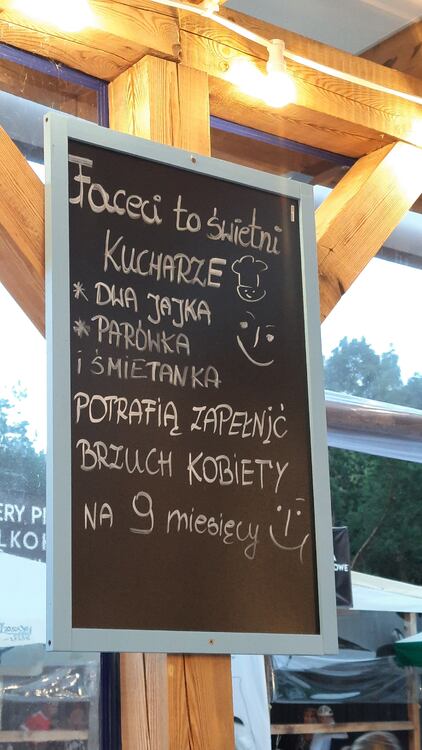 Faceci to świetni
KUCHARZE
* DWA JAJKA
* PARÓWKA
i ŚMIETANKA
POTRAFIĄ ZAPEŁNIĆ
BRZUCH KOBIETY
NA 9 miesięcy
ERY